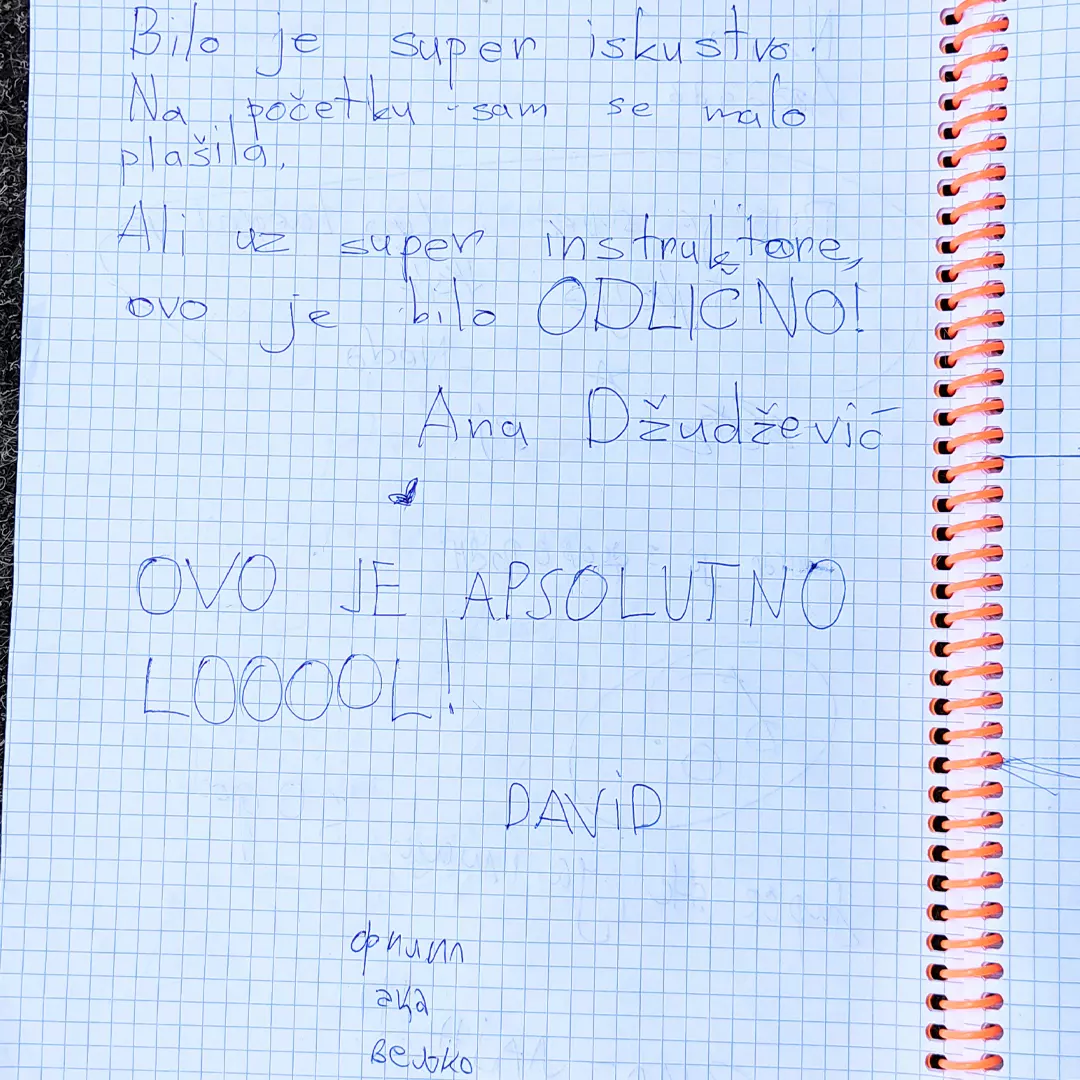 Bilo je super iskustvo.
Na početku sam se malo
plašila.
Ali uz super instruktore,
ovo je bilo ODLIČNO!
Ana Džudžević
OVO JE APSOLUTNO
LOOOOL!
DAVID
филип
аца
вељко